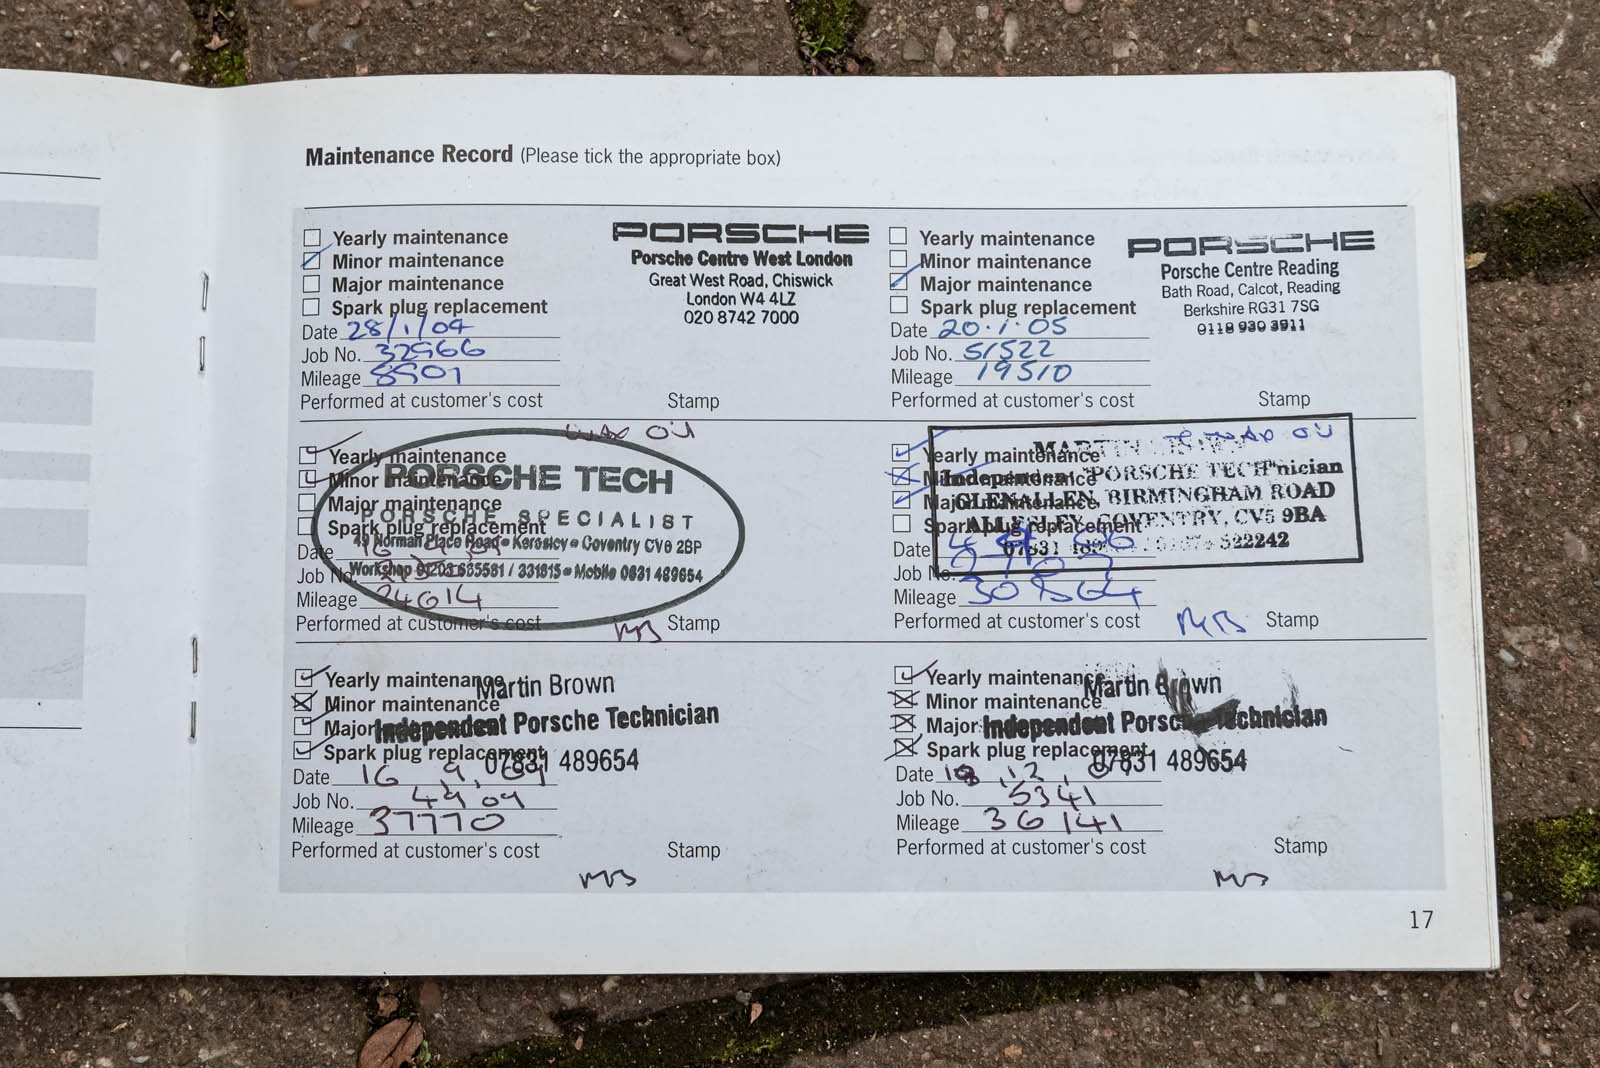 Maintenance Record (Please tick the appropriate box)
Yearly maintenance
Minor maintenance
Major maintenance
Spark plug replacement
Date 28/1/04
Job No. 32966
Mileage 8901
Performed at customer's cost
Stamp
PORSCHE
Porsche Centre West London
Great West Road, Chiswick
London W4 4LZ
020 8742 7000
Yearly maintenance
Minor maintenance
Major maintenance
Spark plug replacement
Date 20.1.05
Job No. 51522
Mileage 19510
Performed at customer's cost
Stamp
PORSCHE
Porsche Centre Reading
Bath Road, Calcot, Reading
Berkshire RG31 7SG
0118 930 3911
Yearly maintenance
Minor maintenance
Major maintenance
Spark plug replacement
Date 16
Job No.
Mileage 24614
Performed at customer's cost
Stamp
MB
OIL
PORSCHE TECH
PORSCHE SPECIALIST
49 Norman Place Road - Keresley - Coventry CV6 2BP
Workshop 01203 / 331815 - Mobile 0831 489654
Yearly maintenance
Minor maintenance
Major maintenance
Spark plug replacement
Date
Job No.
Mileage
Performed at customer's cost
Stamp
MB
OIL
MARTIN
Independent 'PORSCHE TECH'nician
GLENALLEN, BIRMINGHAM ROAD
ALLESLEY, COVENTRY, CV5 9BA
07831 522242
Yearly maintenance
Minor maintenance
Major
Spark plug replacement
Date 16.9.09
Job No. 4909
Mileage 37770
Performed at customer's cost
Stamp
MB
Martin Brown
Independent Porsche Technician
07831 489654
Yearly maintenance
Minor maintenance
Major
Spark plug replacement
Date 12
Job No. 5341
Mileage 36141
Performed at customer's cost
Stamp
MB
Martin Brown
Independent Porsche Technician
07831 489654
17